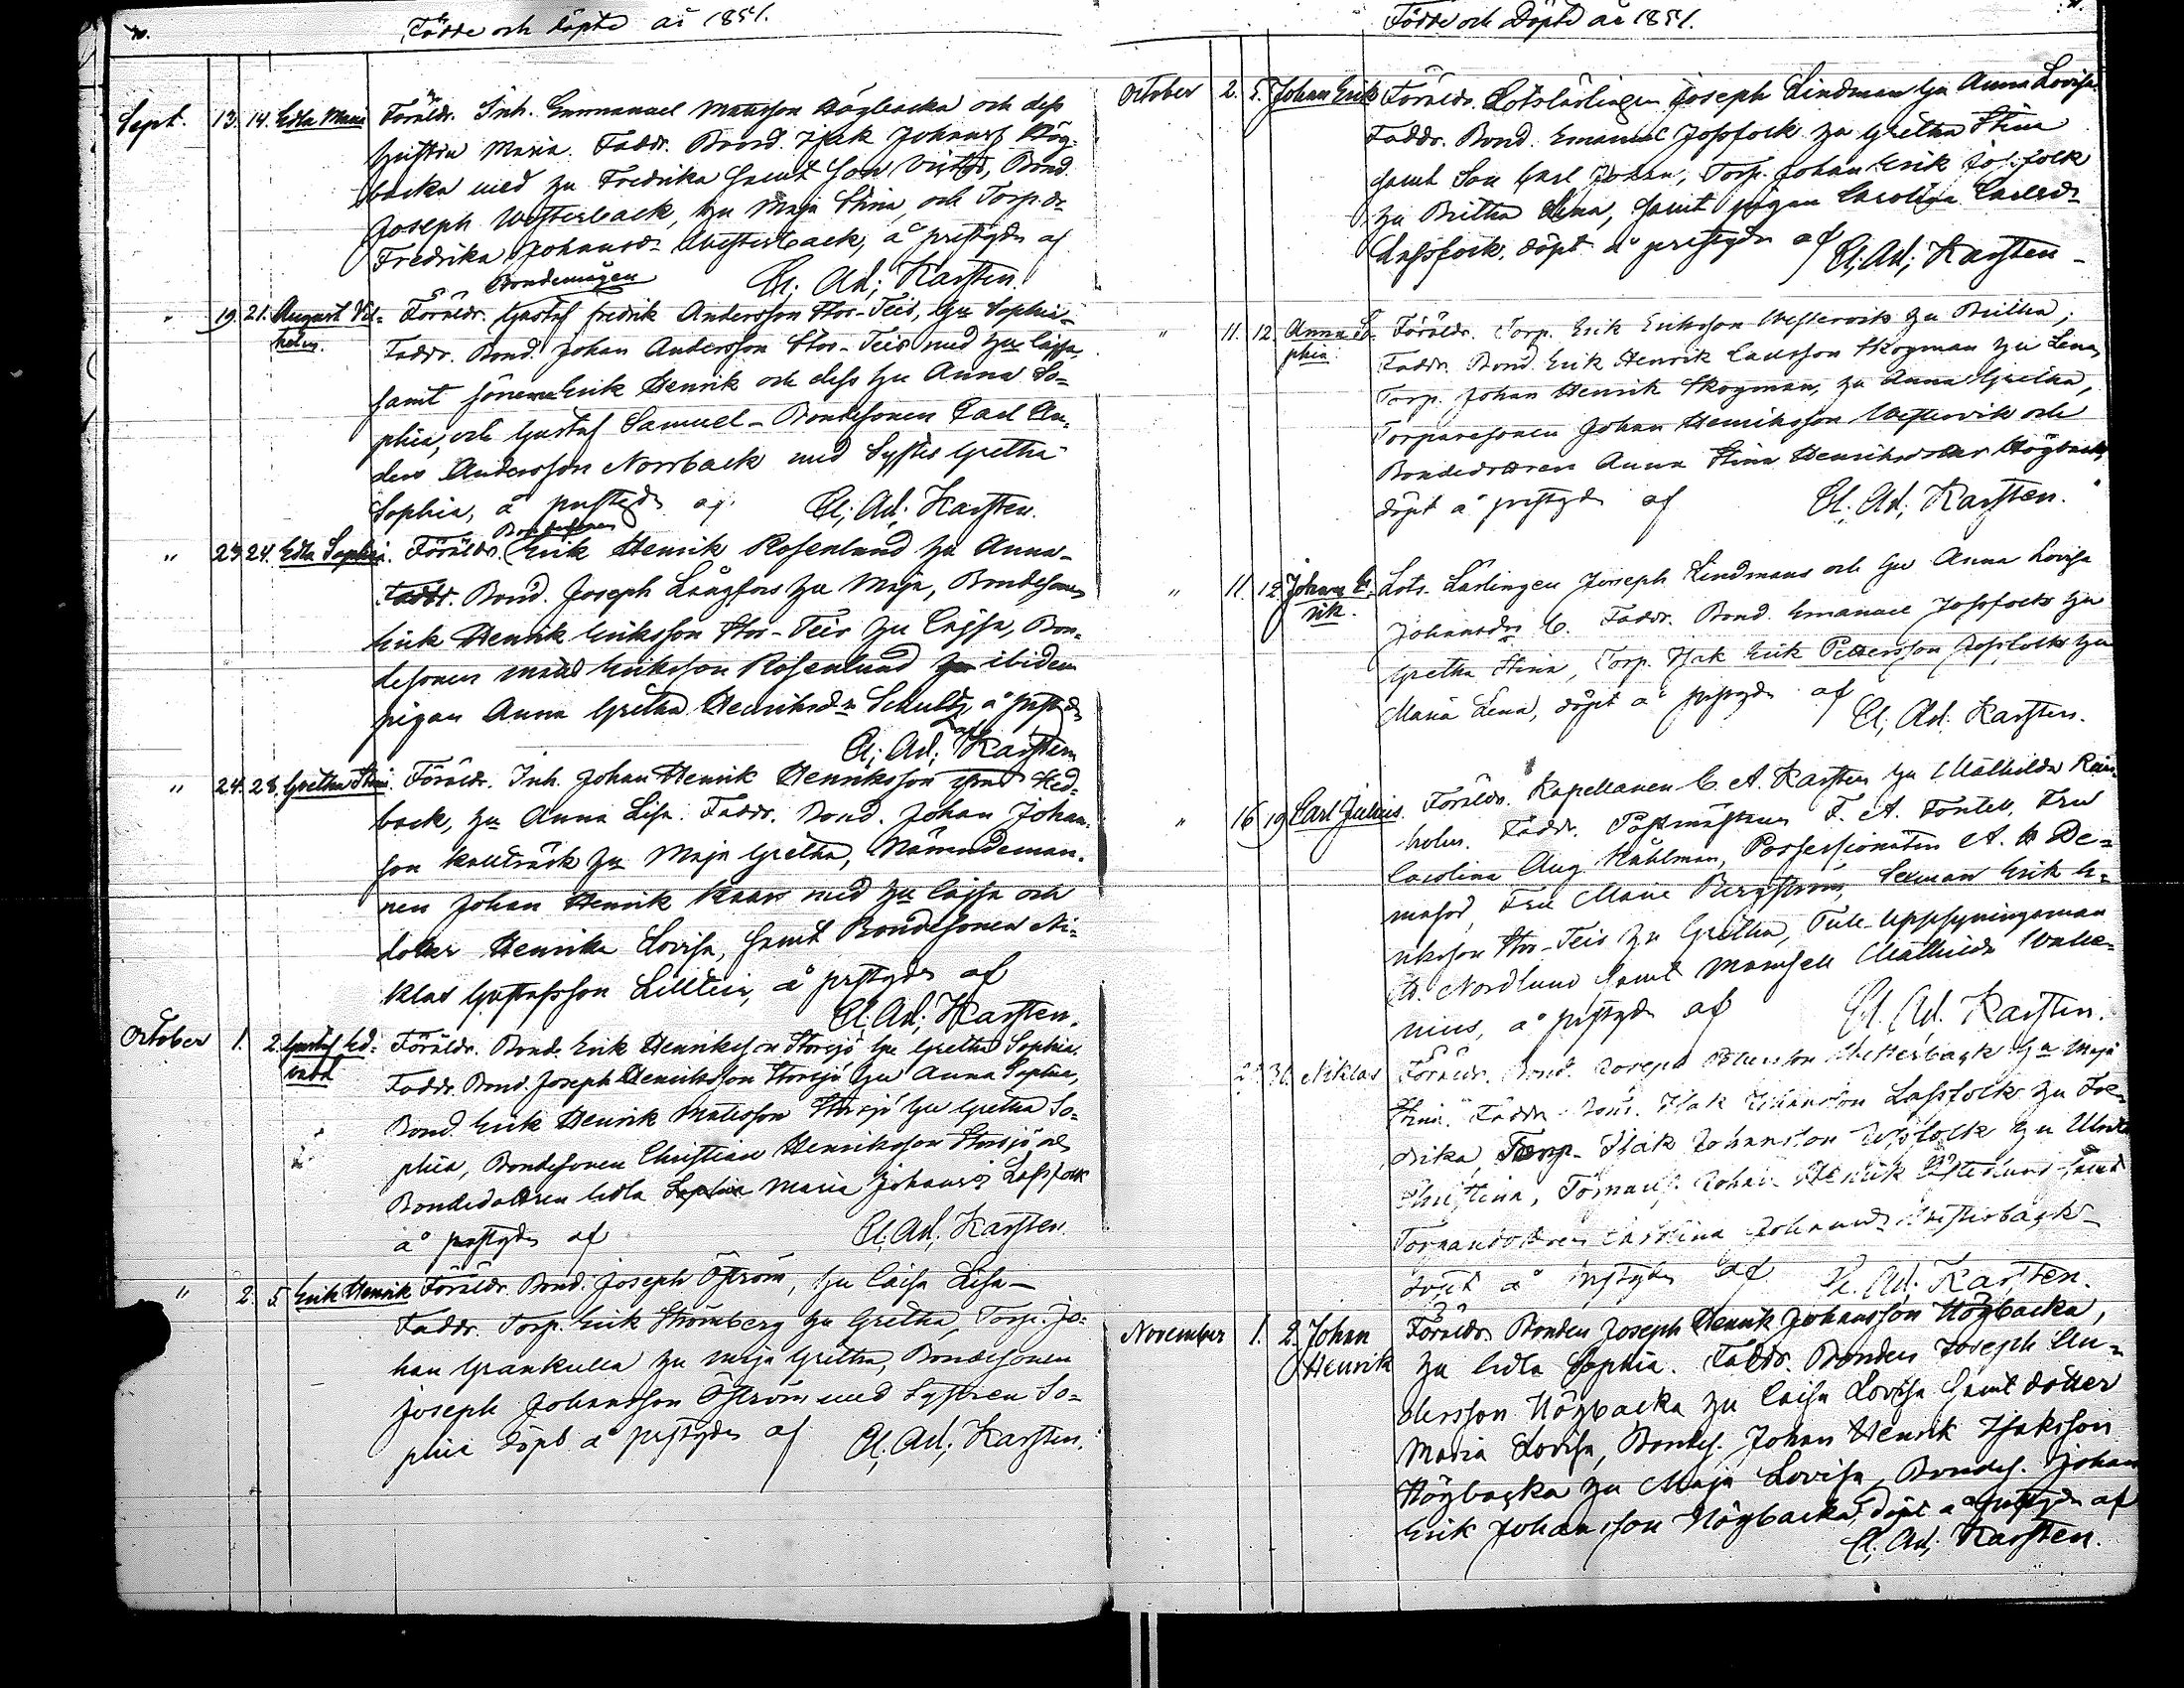 Födde och döpte år 1851.
Sept. 13. 14. Edla Maria Föräldr. Inh. Emmanuel Mattsson Högbacka och dess
hustru Maria. Faddr. Bond. Isak Johanss. Hög-
backa med hu Fredrika samt Son Bond.
Joseph Westerback, hu Maja Stina, och Torp.dr
Fredrika Johansdr Westerback, å prestgdn af
Bondemågen Cl; Ad; Karsten.
" 19. 21. August Vil- Föräldr. Gustaf fredrik Andersson Stor-Teir, hu Sophia-
helm. Faddr. Bond. Johan Andersson Stor-Teir med hu Cajsa,
samt sönerna Erik Henrik och dess hu Anna So-
phia, och Gustaf Samuel - Bondesonen Carl An-
ders Andersson Norrback med Syster Gretha
Sophia, å prestgdn af. Cl; Ad; Karsten.
Bondesonen
" 23. 24. Edla Sophia. Föräldr. Erik Henrik Rosenlund hu Anna-
Faddr. Bond. Joseph Långfors hu Maja, Bondesonen
Erik Henrik Eriksson Stor-Teir hu Cajsa, Bon-
desonen Mats Eriksson Rosenlund ibidem
pigan Anna Gretha Henriksdr Schultz, å prestgdn
af Cl; Ad; Karsten
" 24. 28. Gretha Stina. Föräldr. Inh. Johan Henrik Henriksson Hed-
back, hu Anna Lisa. Faddr. Bond. Johan Johan-
son Kallträsk hu Maja Gretha, Nämndeman-
nen Johan Henrik Knars med hu Cajsa och
dotter Henrika Lovisa, samt Bondesonen Ni-
klas Gustafsson Lillteir, å prestgdn af
Cl; Ad; Karsten.
October 1. 2. Gustaf Ed- Föräldr. Bond. Erik Henriksson Storsjö hu Gretha Sophia.
vard Faddr. Bond. Joseph Henriksson Storsjö hu Anna Sophia,
Bond. Erik Henrik Mattsson Storsjö hu Gretha So-
phia, Bondesonen Christian Henriksson Storsjö och
Bondedottren Edla Sophia Maria Johansdr Lassfolk
å prestgdn af Cl; Ad; Karsten.
" 2. 5. Erik Henrik Föräldr. Bond. Joseph Öström, hu Caisa Lisa-
Faddr. Torp. Erik Strömberg hu Gretha, Torp. Jo-
han Grankulla hu Maja Gretha, Bondesonen
Joseph Johansson Öström med Systren So-
phia döpt å prestgdn af Cl; Ad; Karsten.
Födde och Döpte år 1851.
October 2. 5. Johan Erik Föräldr. Lotslärlingen Joseph Lindman hu Anna Lovisa
Faddr. Bond. Emanuel Jossfolk hu Gretha Stina
samt Son Carl Johan, Torp. Johan Erik Jossfolk
hu Britha Lena, samt pigan Carolina Carlsdr
Lassfolk, döpt å prestgdn af Cl; Ad; Karsten-
" 11. 12. Anna So- Föräldr. Torp. Erik Eriksson Westervik hu Britha;
phia. Faddr. Bond. Erik Henrik Carlsson Skogman hu Lena
Torp. Johan Henrik Skogman, hu Anna Gretha,
Torparesonen Johan Henriksson Westervik och
Bondedottren Anna Stina Henriksdotter Högback,
döpt å prestgdn af Cl; Ad; Karsten.
" 11. 12. Johan E- Lots-Lärlingen Joseph Lindmans och hu Anna Lovisa
rik. Johansdr C. Faddr. Bond. Emanuel Jossfolk hu
Gretha Stina, Torp. Isak Erik Pettersson Jossfolk hu
Maria Lena, döpt å prestgdn af Cl; Ad. Karsten.
" 16 19 Carl Julius. Föräldr. Kapellanen C. A. Karsten hu Mathilda Rein-
holm. Faddr. Postmästaren F. A. Fontell, Fru
Carolina Aug Kåhlman, Possessionaten A. De-
masod, Fru Maria Bergström, Lexman Erik E-
riksson Stor-Teir hu Gretha, Tull-Uppsyningsman
A. Nordlund samt Mamsell Mathilda Walle-
nius, å prestgdn af Cl. Ad. Karsten.
31. Niklas Föräldr. Bond. Joseph Westerback hu Maja
Stina. Faddr. Bond. Isak Johansson Lassfolk hu Fre-
drika, Torp. Isak Johansson Lassfolk hu Ulrika
Christina, Tornares. Johan Henrik Westerlund samt
Carolina Johansdr Westerback-
döpt å prestgdn af Cl. Ad; Karsten.
November 1. 2. Johan Föräldr. Bonden Joseph Henrik Johansson Högbacka,
Henrik hu Edla Sophia. Faddr. Bonden Joseph An-
dersson Högbacka hu Caisa Lovisa samt dotter
Maria Lovisa, Bondes. Johan Henrik Isaksson
Högbacka hu Maja Lovisa, Bondes. Johan
Erik Johansson Högbacka, döpt å prestgdn af
Cl; Ad; Karsten.